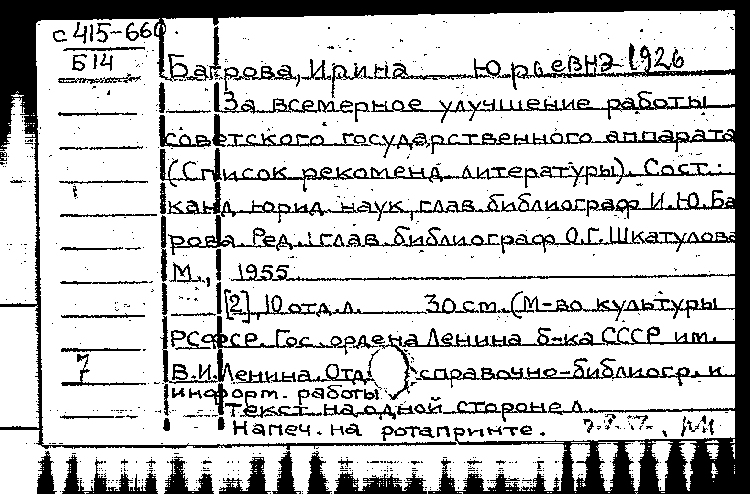 с 415-660
Б14
Багрова, Ирина Юрьевна 1926
За всемерное улучшение работы
советского государственного аппарата
(Список рекоменд. литературы). Сост.:
канд. юрид. наук, глав. библиограф И.Ю. Ба
рова. Ред.: глав. библиограф О.Г. Шкатулова
М., 1955
[2], 10 отд. л. 30 см. (М-во культуры
РСФСР. Гос. ордена Ленина б-ка СССР им.
7
В.И. Ленина. Отд. справочно-библиогр. и
информ. работы
Текст на одной стороне л.
Напеч. на ротапринте.